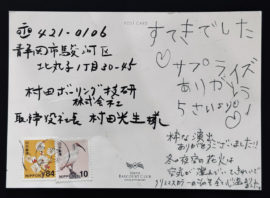 〒421-0106
静岡市駿河区
北丸子1丁目30-45
村田ボーリング技研
株式会社
取締役社長 村田光生様
NIPPON 84
NIPPON 10
POST CARD
すてきでした
サプライズ
ありがとう
5さいより
粋な演出
ありがとうございました!!
冬の夜空の花火は
空気が澄んでいてきれいで